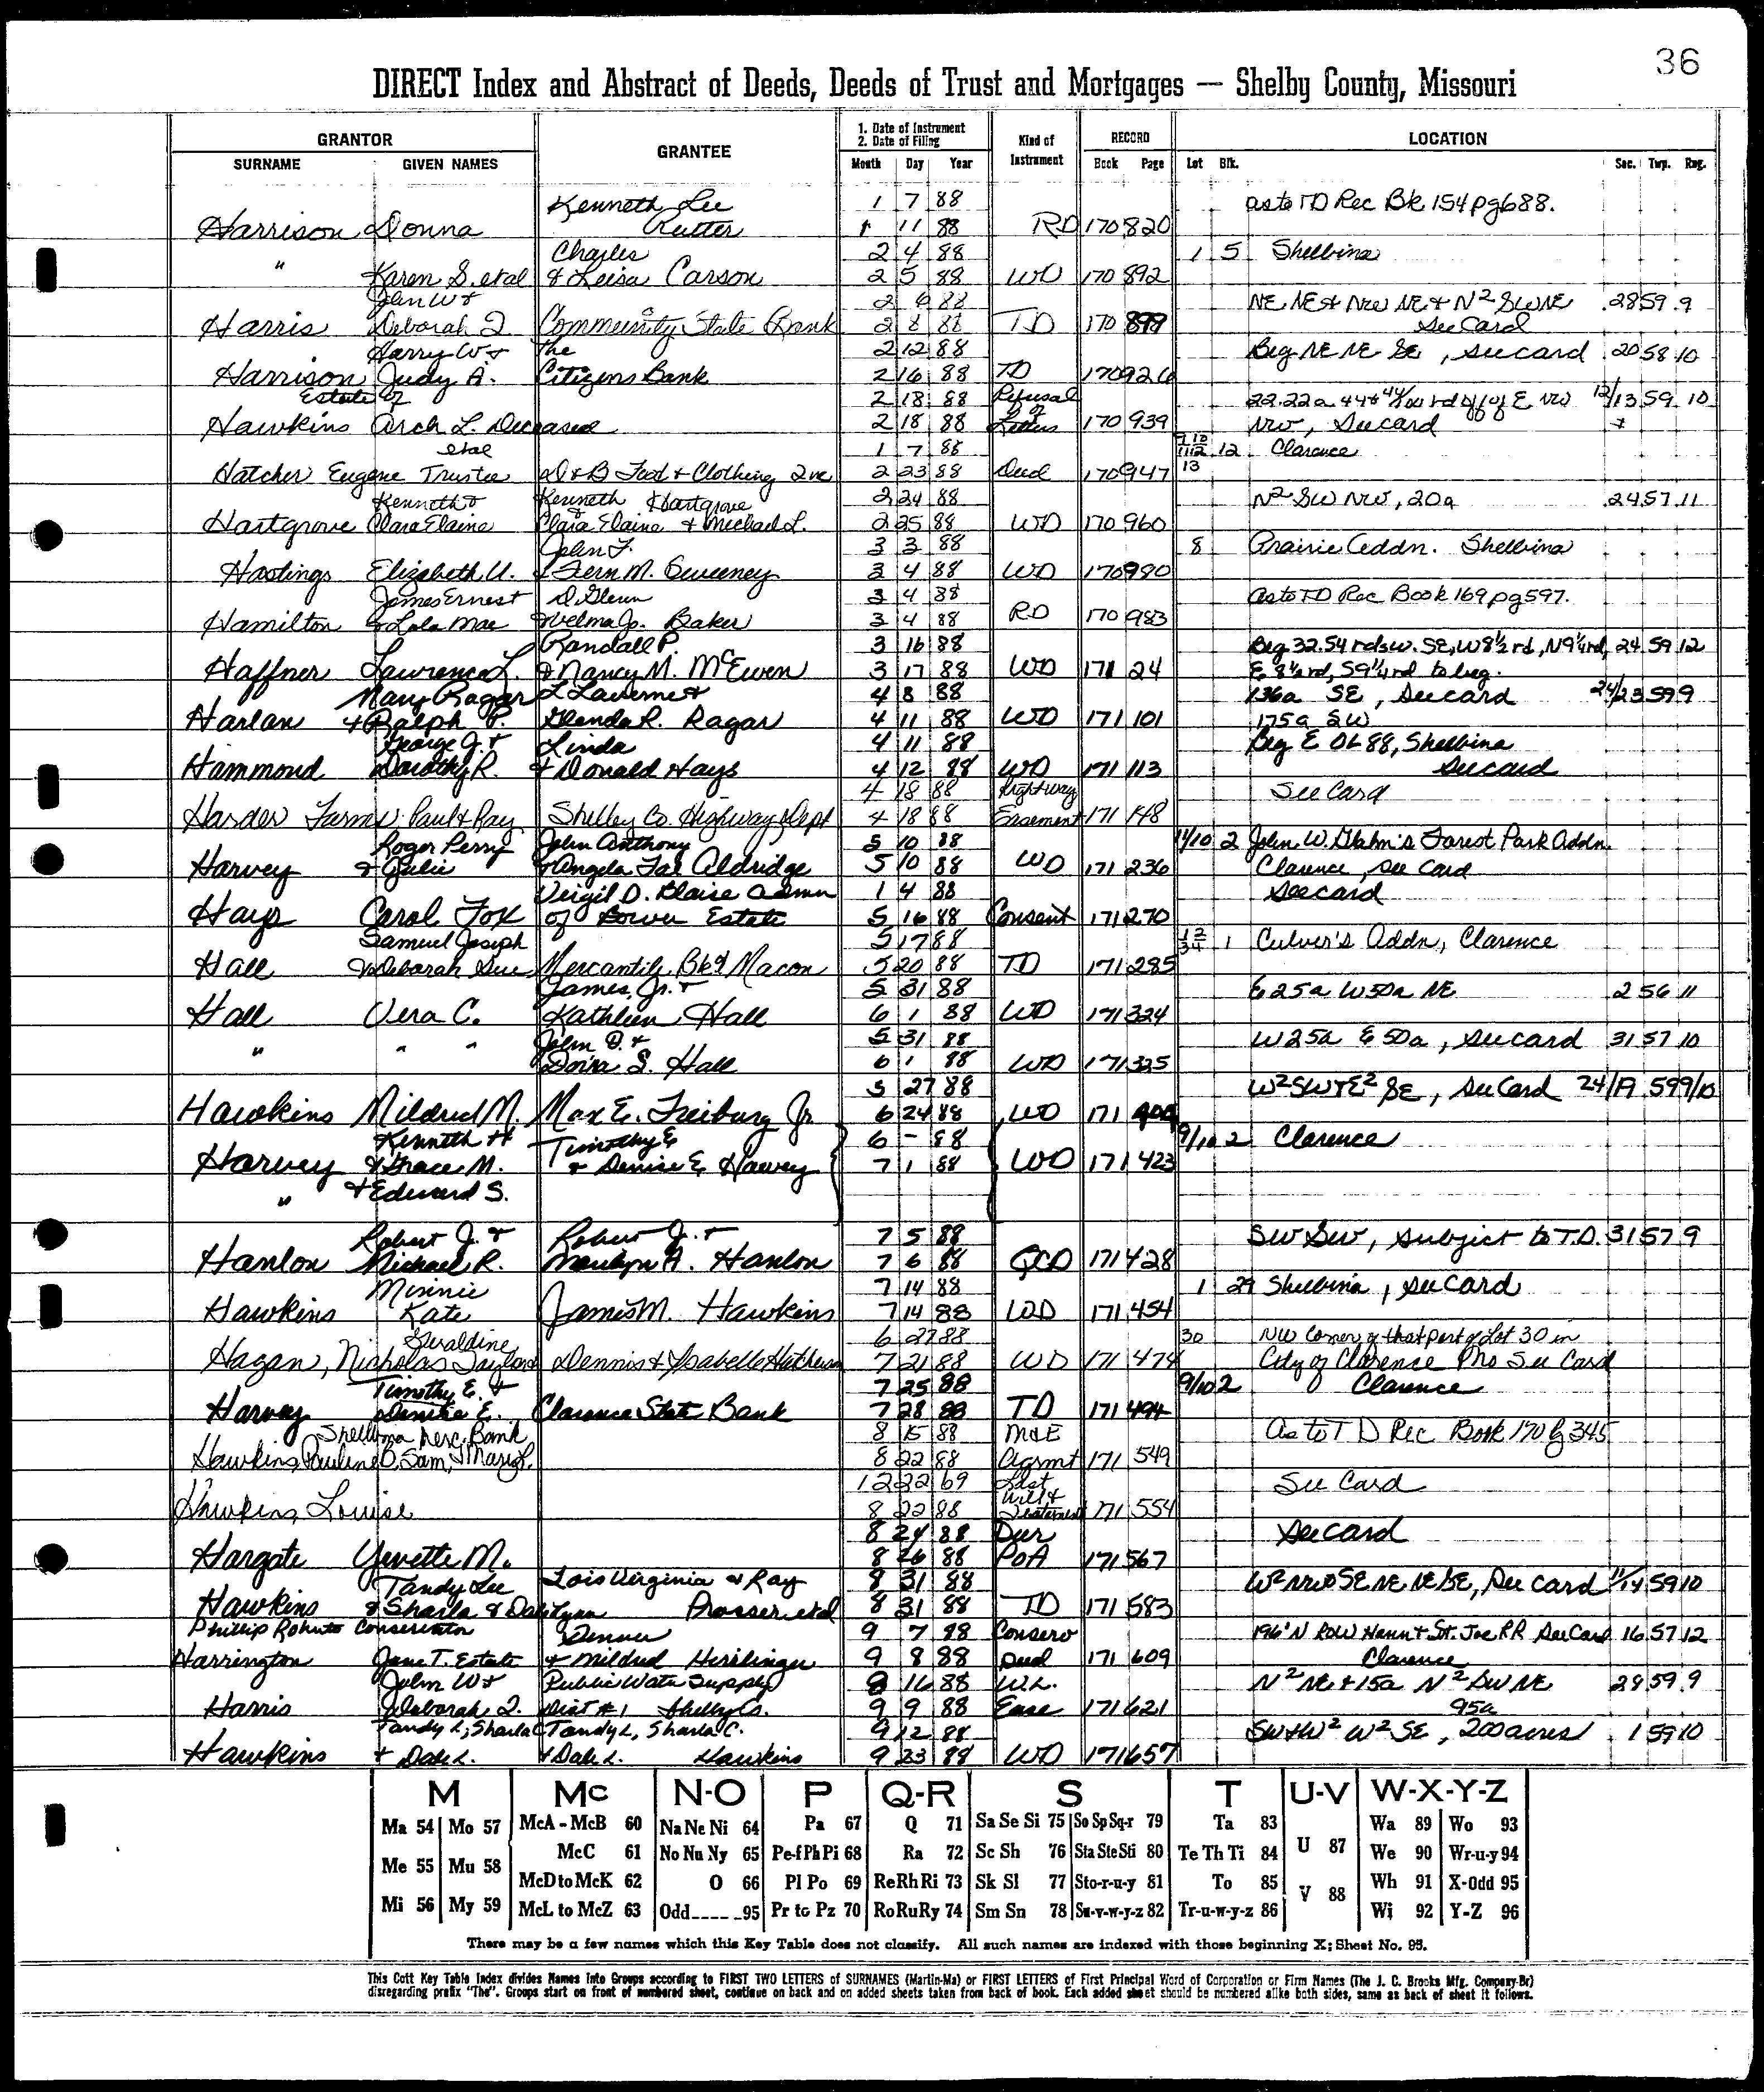 36
DIRECT Index and Abstract of Deeds, Deeds of Trust and Mortgages — Shelby County, Missouri
GRANTOR GRANTEE 1. Date of Instrument 2. Date of Filing Kind of Instrument RECORD LOCATION
SURNAME GIVEN NAMES Month Day Year Book Page Lot Blk. Sec. Twp. Rng.
Kenneth Lee 1 7 88 as to TD Rec Bk 154 pg 688.
Harrison Donna Rutter 1 11 88 RD 170 820
Charles 2 4 88 1 5 Shelbina
" Karen S. etal & Leisa Carson 2 5 88 WD 170 892
John W & 2 6 88 NE NE & NW NE & N² SW NE 28 59 9
Harris Deborah I. Community State Bank 2 8 88 TD 170 899 See Card
Harry W & The 2 12 88 Beg NE NE SE, see card 20 58 10
Harrison Judy A. Citizens Bank 2 16 88 TD 170 926
Estate of 2 18 88 Refusal 22.22a E NW 12/13 59 10
Hawkins Arch L. Deceased 2 18 88 of Letters 170 939 NW, See card
etal 1 7 88 12 Clarence
Hatcher Eugene Trustee D & B Food & Clothing Inc 2 23 88 Deed 170 947 13
Kenneth & Kenneth Hartgrove 2 24 88 N² SW NW, 20a 24 57 11
Hartgrove Clara Elaine Clara Elaine & Michael L. 2 25 88 WD 170 960
John F. 3 3 88 8 Prairie Addn. Shelbina
Hastings Elizabeth U. & Fern M. Sweeney 3 4 88 WD 170 980
James Ernest D. Glenn 3 4 88 as to TD Rec Book 169 pg 597.
Hamilton & Lola Mae & Velma Jo. Baker 3 4 88 RD 170 983
Randall P. 3 16 88 Beg 32.54 rds w. SE, W 8½ rd, N 9¼ rd, 24 59 12
Haffner Lawrence L. & Nancy M. McEwen 3 17 88 WD 171 24 E 8½ rd, S 9¼ rd to beg.
Mary Ragar L. Laverne & 4 8 88 136a SE, See card 24/23 59 9
Harlan & Ralph P. Glenda R. Ragar 4 11 88 WD 171 101 175a SW
George J. & Linda 4 11 88 Beg E OL 88, Shelbina
Hammond Dorothy R. & Donald Hays 4 12 88 WD 171 113 See card
4 18 88 Rightway See Card
Harder Farms Paul & Ray Shelby Co. Highway Dept 4 18 88 Easement 171 148
Roger Perry John Anthony 5 10 88 11/10 2 John W. Glahn's Forest Park Addn.
Harvey & Julie & Angela Fae Aldridge 5 10 88 WD 171 236 Clarence, See Card
Virgil D. Blaise Admn 1 4 88 See card
Hays Carol Fox of Bower Estate 5 16 88 Consent 171 270
Samuel Joseph 5 17 88 12 34 1 Culver's Addn, Clarence
Hall & Deborah Sue Mercantile Bk of Macon 5 20 88 TD 171 285
James, Jr. & 5 31 88 E 25a W 50a NE 2 56 11
Hall Vera C. Kathleen Hall 6 1 88 WD 171 324
John D. & 5 31 88 W 25a E 50a, see card 31 57 10
" " " Doira S. Hall 6 1 88 WD 171 325
5 27 88 W² SW & E² SE, See Card 24/19 59 9/10
Hawkins Mildred M. Max E. Freiburg Jr 6 24 88 WD 171
Kenneth H Timothy E 6 - 88 9/10 2 Clarence
Harvey & Grace M. & Denise E. Harvey 7 1 88 WD 171 423
" & Edward S.
Robert J. & Robert J. & 7 5 88 SW SW, subject to T.D. 31 57 9
Hanlon Michael R. Marilyn A. Hanlon 7 6 88 QCD 171 428
Minnie 7 14 88 1 29 Shelbina, see card
Hawkins Kate James M. Hawkins 7 14 88 WD 171 454
Geraldine 6 27 88 30 NW Corner of that part of Lot 30 in
Hagan, Nicholas Taylor Dennis & Ysabelle 7 21 88 WD 171 474 City of Clarence Mo See Card
Timothy E. & 7 25 88 9/10 2 Clarence
Harvey Denise E. Clarence State Bank 7 28 88 TD 171 494
Shelbina Merc. Bank 8 15 88 M&E As to T D Rec Book 170 Pg 345
Hawkins, Pauline D, Sam, Mary L. 8 22 88 Agrmt 171 549
12 22 69 Last See Card
Hawkins, Louise 8 22 88 Will & Testament 171 554
8 24 88 Dur See card
Hargate Yevette M. 8 26 88 PoA 171 567
Tandy Lee Lois Virginia & Ray 8 31 88 W² NW SE NE NE SE, See card 11/14 59 10
Hawkins & Sharla & Dale Lynn Prosser etal 8 31 88 TD 171 583
Phillip Rohrets Conservator Denver 9 7 88 Conserv 196' N ROW Hann & St. Joe RR See Card 16 57 12
Harrington Jane T. Estate & Mildred Herrlinger 9 8 88 Deed 171 609 Clarence
John W & Public Water Supply 8 16 88 W.L. N² NE & 15a N² SW NE 28 59 9
Harris Deborah I. Dist #1 Shelby Co. 9 9 88 Ease 171 621 95a
Tandy L, Sharla C Tandy L, Sharla C. 9 12 88 SW & W² W² SE, 200 acres 1 59 10
Hawkins & Dale L. & Dale L. Hawkins 9 23 88 WD 171 657
M Mc N-O P Q-R S T U-V W-X-Y-Z
Ma 54 Mo 57 McA - McB 60 Na Ne Ni 64 Pa 67 Q 71 Sa Se Si 75 So Sp Sq-r 79 Ta 83 Wa 89 Wo 93
Me 55 Mu 58 McC 61 No Nu Ny 65 Pe-f Ph Pi 68 Ra 72 Sc Sh 76 Sta Ste Sti 80 Te Th Ti 84 U 87 We 90 Wr-u-y 94
McD to McK 62 O 66 Pl Po 69 Re Rh Ri 73 Sk Sl 77 Sto-r-u-y 81 To 85 V 88 Wh 91 X-Odd 95
Mi 56 My 59 McL to McZ 63 Odd 95 Pr to Pz 70 Ro Ru Ry 74 Sm Sn 78 Su-v-w-y-z 82 Tr-u-w-y-z 86 Wi 92 Y-Z 96
There may be a few names which this Key Table does not classify. All such names are indexed with those beginning X; Sheet No. 95.
This Cott Key Table Index divides Names into Groups according to FIRST TWO LETTERS of SURNAMES (Martin-Ma) or FIRST LETTERS of First Principal Word of Corporation or Firm Names (The J. C. Brooks Mfg. Company-Br)
disregarding prefix "The". Groups start on front of numbered sheet, continue on back and on added sheets taken from back of book. Each added sheet should be numbered alike both sides, same as back of sheet it follows.